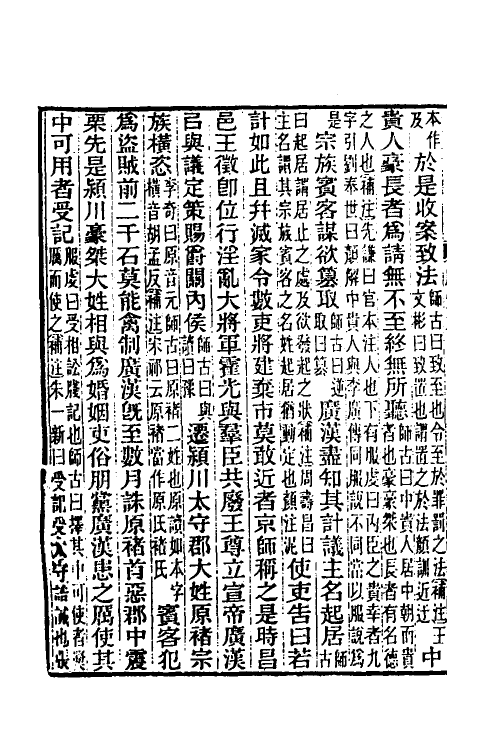 本作及於是收案致法師古曰致至也令至於罪罰之法補注王文彬曰致置也謂置之於法顏訓近迂中
貴人豪長者爲請無不至終無所聽師古曰中貴人居中朝而貴者也豪豪桀也長者有名德
之人也補注先謙曰官本注人也下有服虔曰內臣之貴幸者九字引劉奉世曰顏解中貴人與李廣傳同服說不同當以服說爲
是宗族賓客謀欲篡取師古曰逆取曰篡廣漢盡知其計議主名起居師古
曰起居謂居止之處及欲發起之狀補注周壽昌曰主名謂其宗族賓客之名起居猶動定也顏注泥使吏告曰若
計如此且幷滅家令數吏將建棄市莫敢近者京師稱之是時昌
邑王徵卽位行淫亂大將軍霍光與羣臣共廢王尊立宣帝廣漢
㠯與議定策賜爵關內侯師古曰與讀曰豫遷潁川太守郡大姓原褚宗
族橫恣李奇曰原音元師古曰原褚二姓也原讀如本字橫音胡孟反補注宋祁云原褚當作原氏褚氏賓客犯
爲盜賊前二千石莫能禽制廣漢旣至數月誅原褚首惡郡中震
栗先是潁川豪桀大姓相與爲婚姻吏俗朋黨廣漢患之厲使其
中可用者受記服虔曰受相訟牋記也師古曰擇其中可使者奬厲而使之補注朱一新曰受記受太守語誡也張